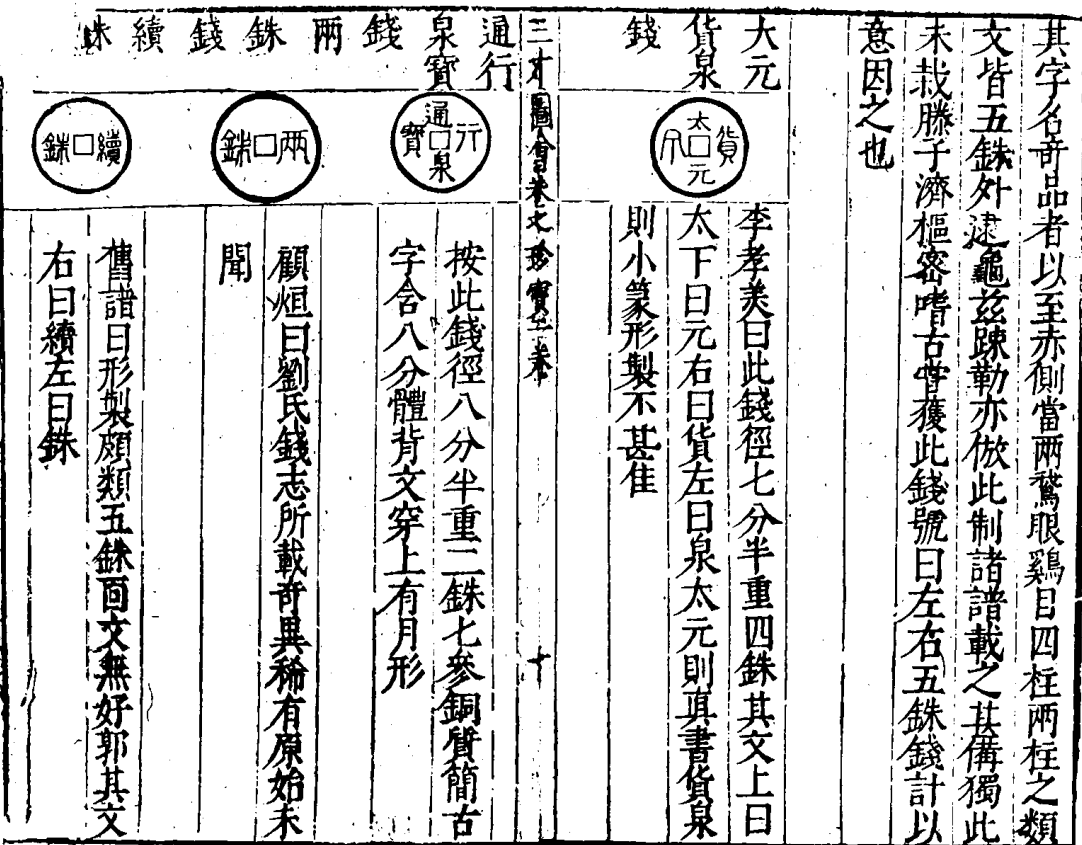 其字名竒品者以至赤側當兩鵞眼鷄目四柱兩柱之類
文皆五銖外逮龜茲踈勒亦倣此制諸譜載之其備獨此
未㦲滕子濟樞密嗜古嘗獲此錢號曰左右五銖錢計以
意因之也
大元
貨泉
錢
太元貨
李孝美曰此錢徑七分半重四銖其文上曰
太下曰元右曰貨左曰泉太元則真書貨泉
則小篆形製不甚佳
三才圖會卷之珍寶 卷 十
通行
泉寶
錢
通泉行寶
按此錢徑八分半重二銖七參銅質簡古
字含八分體背文穿上有月形
兩
銖
錢
兩銖
顧烜曰劉氏錢志所載竒異稀有原始未
聞
續
銖
續銖
舊譜曰形製頗類五銖面文無好郭其文
右曰續左曰銖